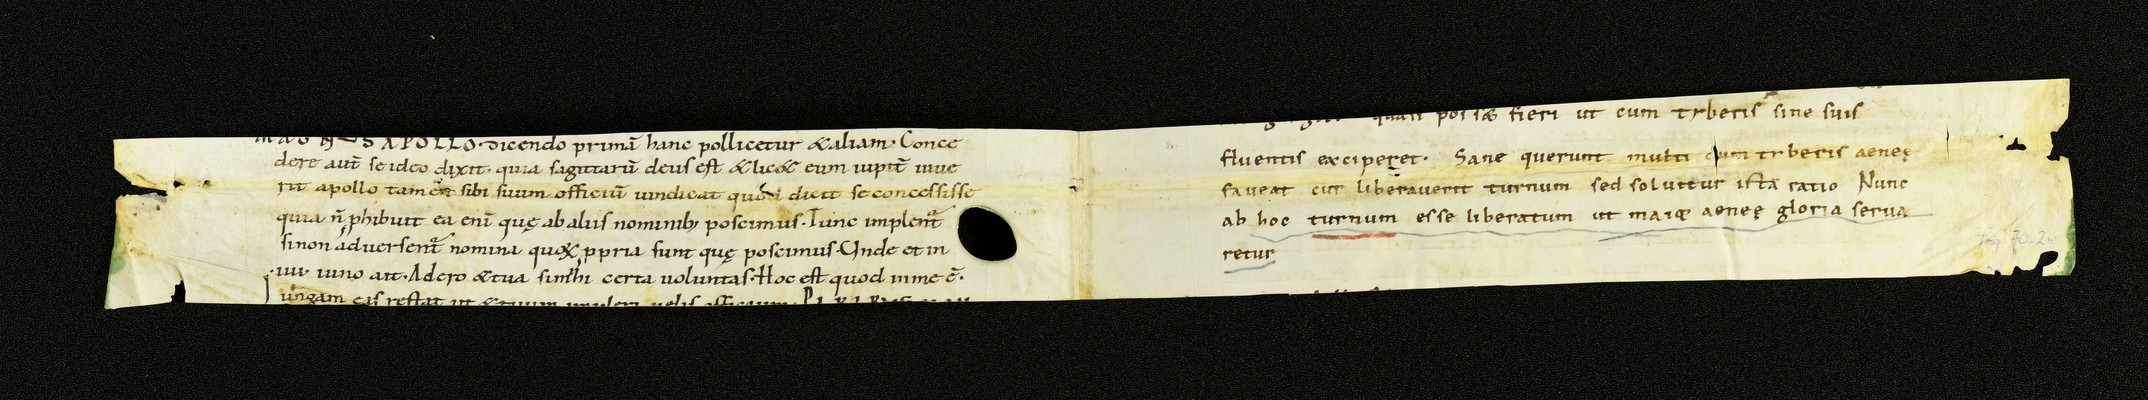 MAGNUS APOLLO· dicendo primā hanc pollicetur &aliam· Conce
dere aut̄ se ideo dixit· quia sagittarū deus est &lic& eum iupit̄ iuue
rit apollo tamen sibi suum officiū uindicat quod dicit se concessisse
quia n̄ phibuit ea eni̅ quę ab aliis nominib; poscimus· Tunc implent᷑
si non adversent᷑ nomina quor̄ ppria sunt quę poscimus· Unde et in
iuno ait· Adero &tua certa uoluntas· Hoc est quod in me ē·
iungam eas restat ut &tuum impleri uelis officium·
quasi poss& fieri ut cum tyberis sine suis
fluentis exciperet· Sane querunt multi cum tyberis aeneę
faveat cur liberaverit turnum sed soluitur ista ratio Nunc
ab hoc turnum esse liberatum ut maior aeneę gloria serua
retur